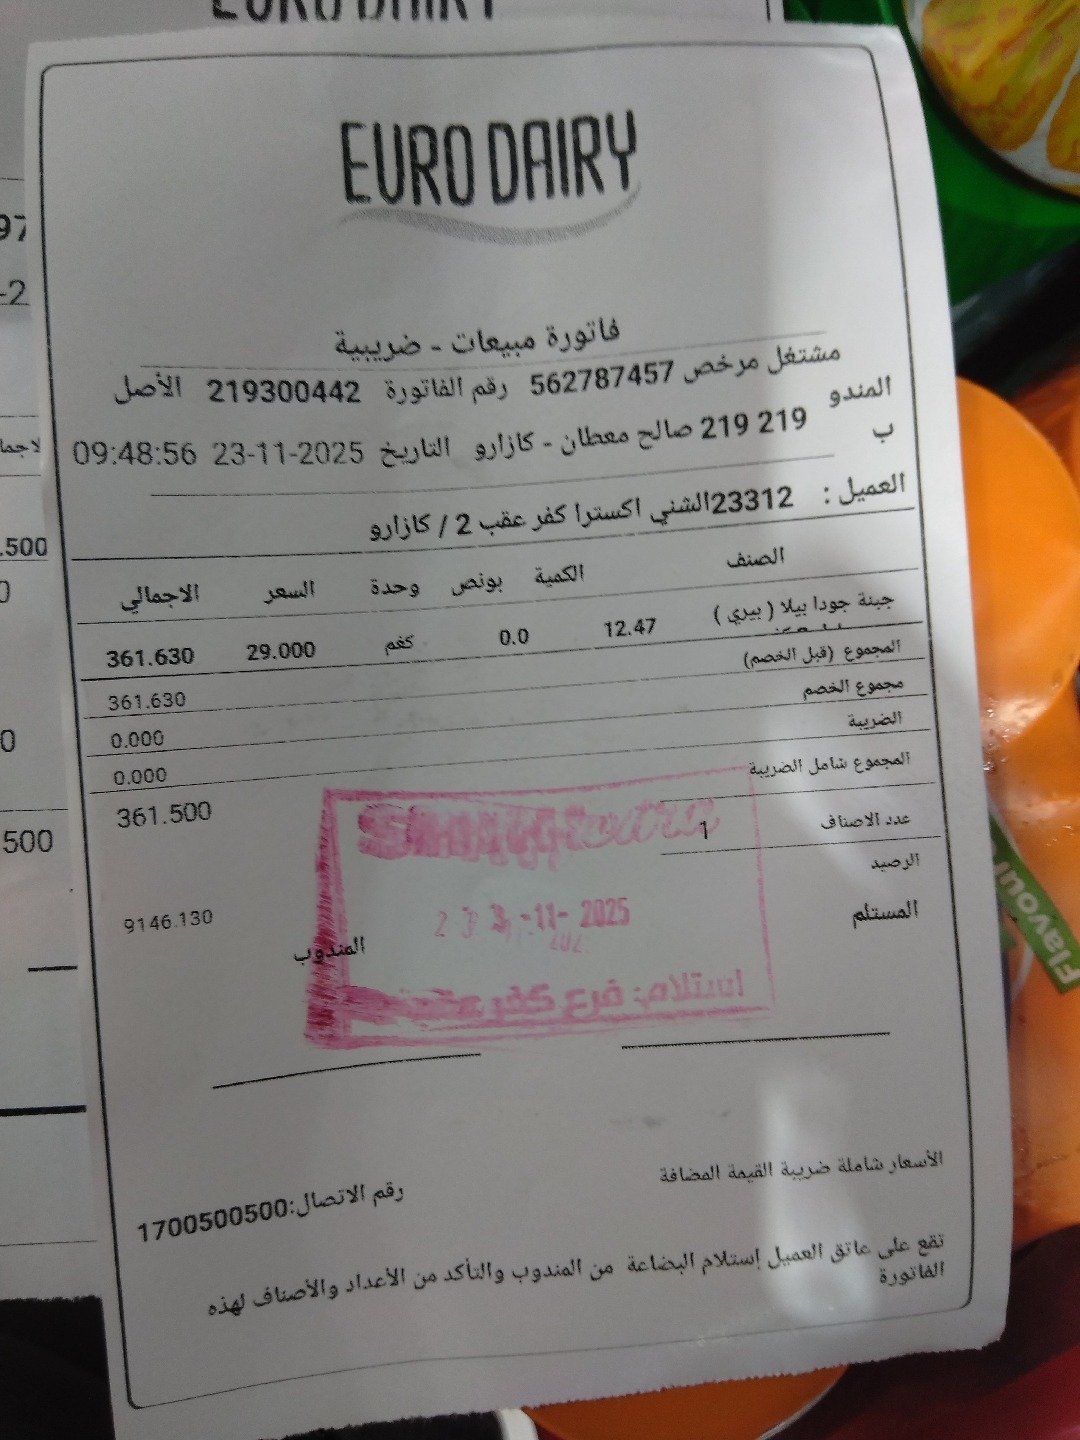 EURO DAIRY
EURO DAIRY
فاتورة مبيعات - ضريبية
مشتغل مرخص 562787457 رقم الفاتورة 219300442 الأصل
المندوب 219 219 صالح معطان - كازارو التاريخ 23-11-2025 09:48:56
العميل : 23312الشني اكسترا كفر عقب 2 / كازارو
الصنف الكمية بونص وحدة السعر الاجمالي
جبنة جودا بيلا ( بيري ) 12.47 0.0 كغم 29.000 361.630
المجموع (قبل الخصم) 361.630
مجموع الخصم 0.000
الضريبة 0.000
المجموع شامل الضريبة 361.500
عدد الاصناف 1
الرصيد 9146.130
المستلم المندوب
extra
-11- 2025
استلام: فرع كفر عقب
الأسعار شاملة ضريبة القيمة المضافة
رقم الاتصال:1700500500
تقع على عاتق العميل إستلام البضاعة من المندوب والتأكد من الأعداد والأصناف لهذه
الفاتورة
97
-2
.500
0
0
500
Flavour